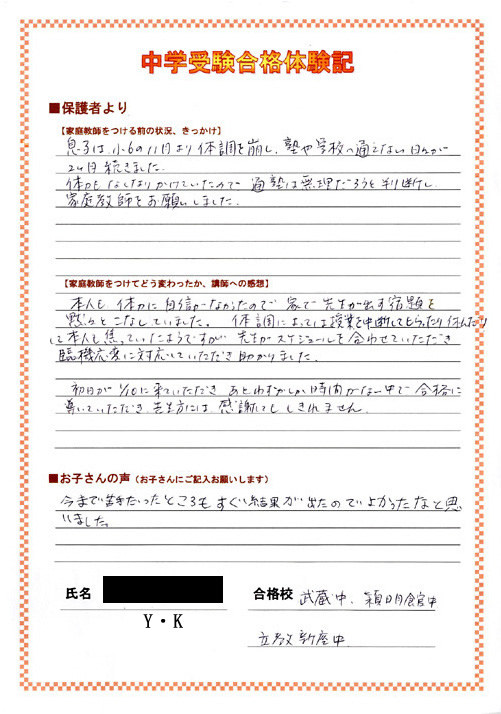 中学受験合格体験記
■保護者より
【家庭教師をつける前の状況、きっかけ】
息子は、小6の11月より体調を崩し、塾や学校へ通えない日々が
2ヶ月続きました。
体力もなくなりかけていたので通塾は無理だろうと判断し
家庭教師をお願いしました。
【家庭教師をつけてどう変わったか、講師への感想】
本人も体力に自信がなかったので家で先生が出す宿題を
黙々とこなしていました。体調によっては授業を中断してもらったり休んだり
して本人も焦っていたようですが先生がスケジュールを合わせていただき
臨機応変に対応していただき助かりました。
初日が1/10に来ていただきあとわずかしか時間がない中で合格に
導いていただき先生方には感謝してもしきれません。
■お子さんの声（お子さんにご記入お願いします）
今まで苦手だったところもすぐに結果が出たのでよかったなと思
いました。
氏名
Y・K
合格校 武蔵中、穎明館中
立教新座中